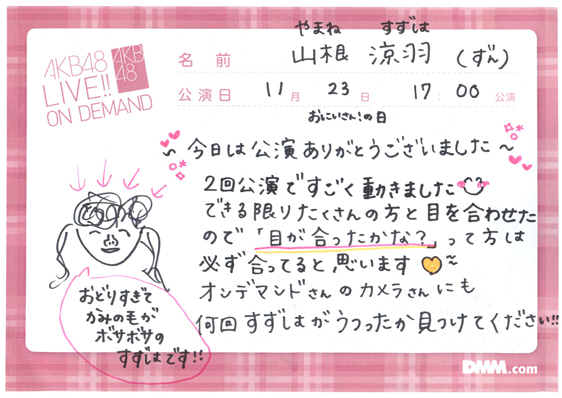 AKB48
LIVE!!
ON DEMAND
AKB
48
やまね すずは
名前 山根 涼羽 (ずん)
公演日 11月 23日 17:00 公演
おにいさん!の日
~今日は公演ありがとうございました~
2回公演ですごく動きました
できる限りたくさんの方と目を合わせた
ので「目が合ったかな?」って方は
必ず合ってると思います
オンデマンドさんのカメラさんにも
何回すずはがうつったか見つけてください!!
おどりすぎて
かみの毛が
ボサボサの
すずはです!!
DMM.com